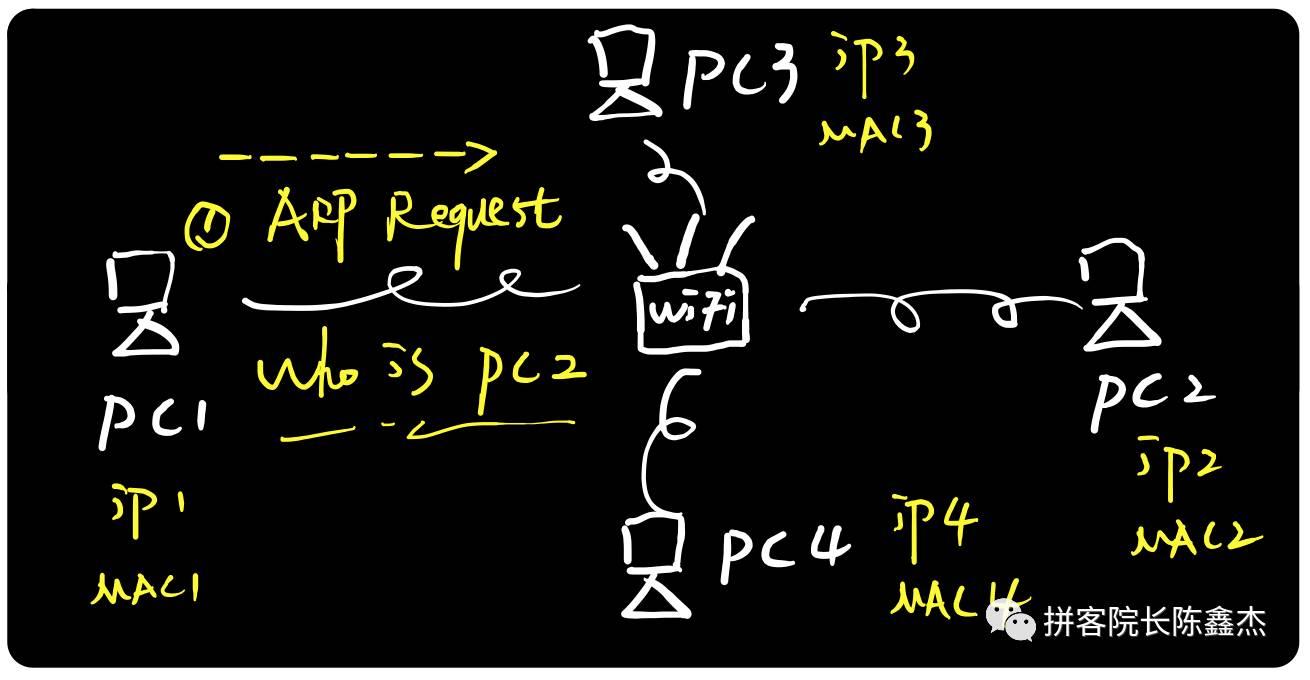 PC3
iP3
MAC3
① ARP Request
WiFi
Who is PC2
PC1
iP1
MAC1
PC2
iP2
MAC2
PC4
iP4
MAC4
拼客院长陈鑫杰